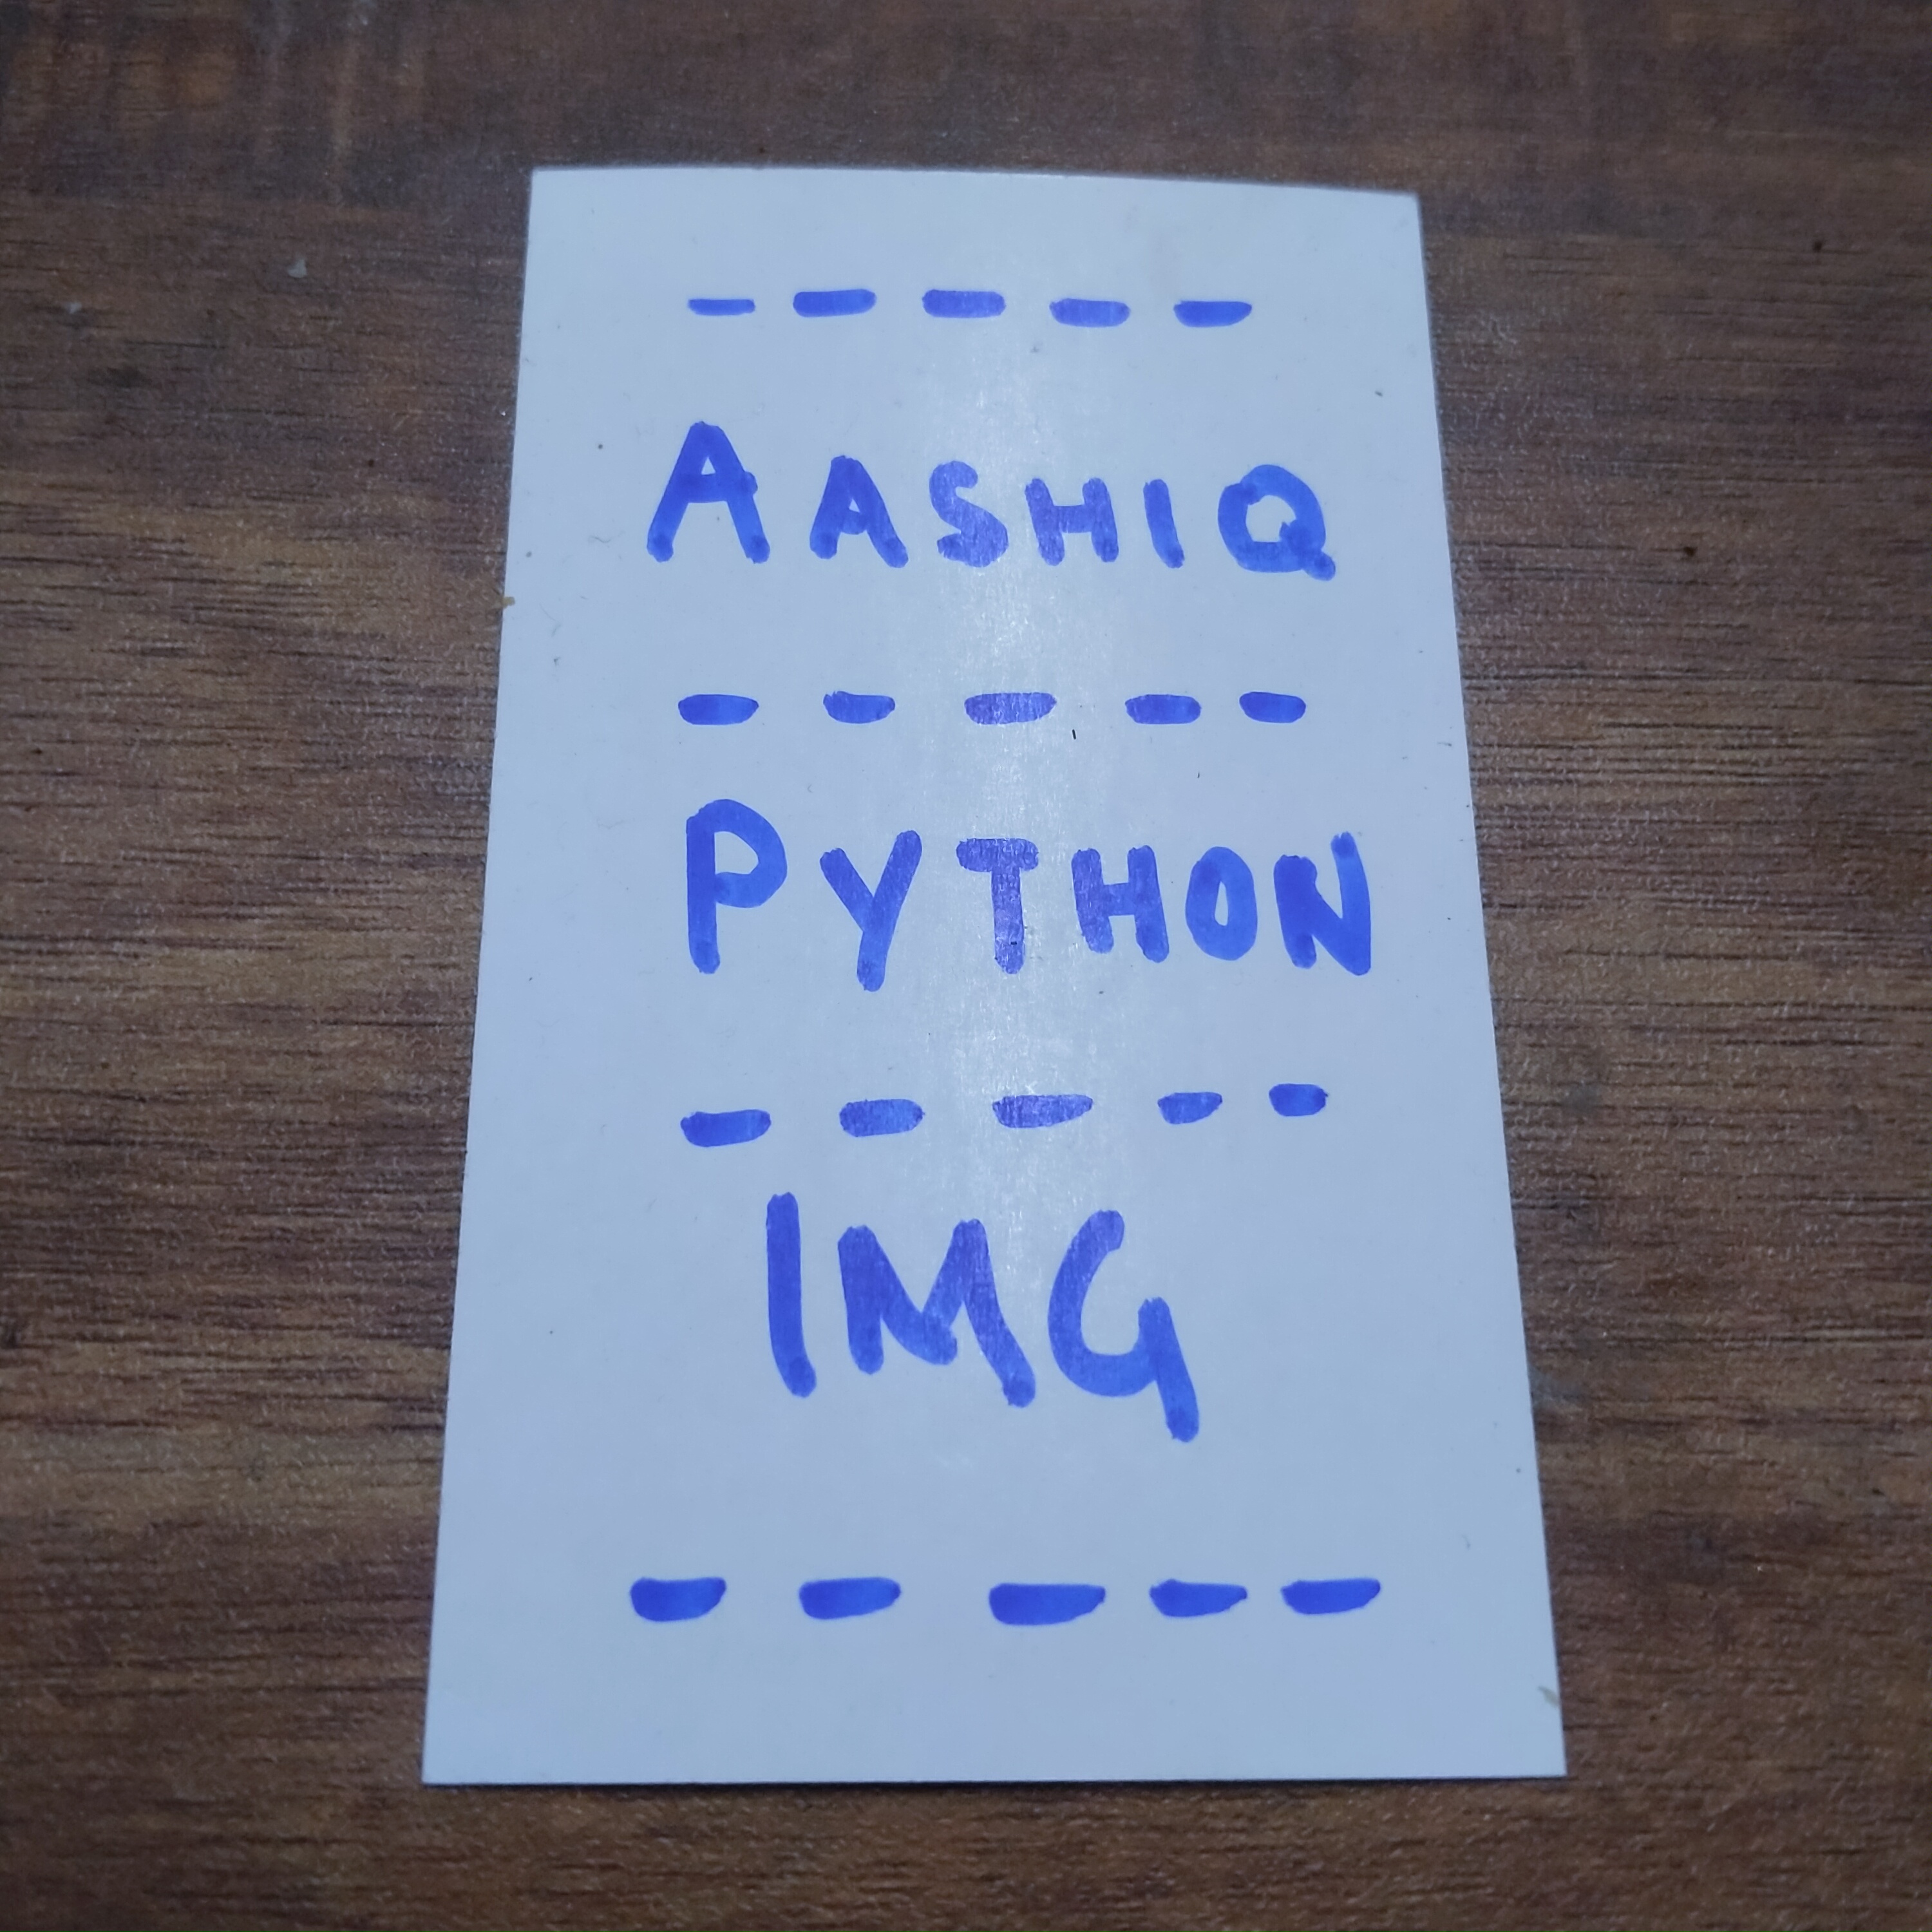 - - - - -
AASHIQ
- - - - -
PYTHON
- - - - -
IMG
- - - - -